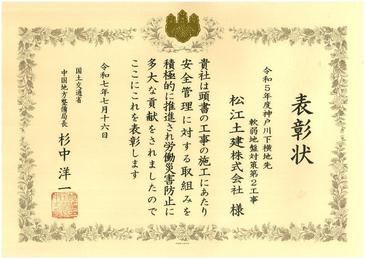 表彰状
令和5年度神戸川下横地先
軟弱地盤対策第2工事
松江土建株式会社 様
貴社は頭書の工事の施工にあたり
安全管理に対する取組みを
積極的に推進され労働災害防止に
多大な貢献をされましたので
ここにこれを表彰します
令和七年七月十六日
国土交通省
中国地方整備局長 杉中洋一